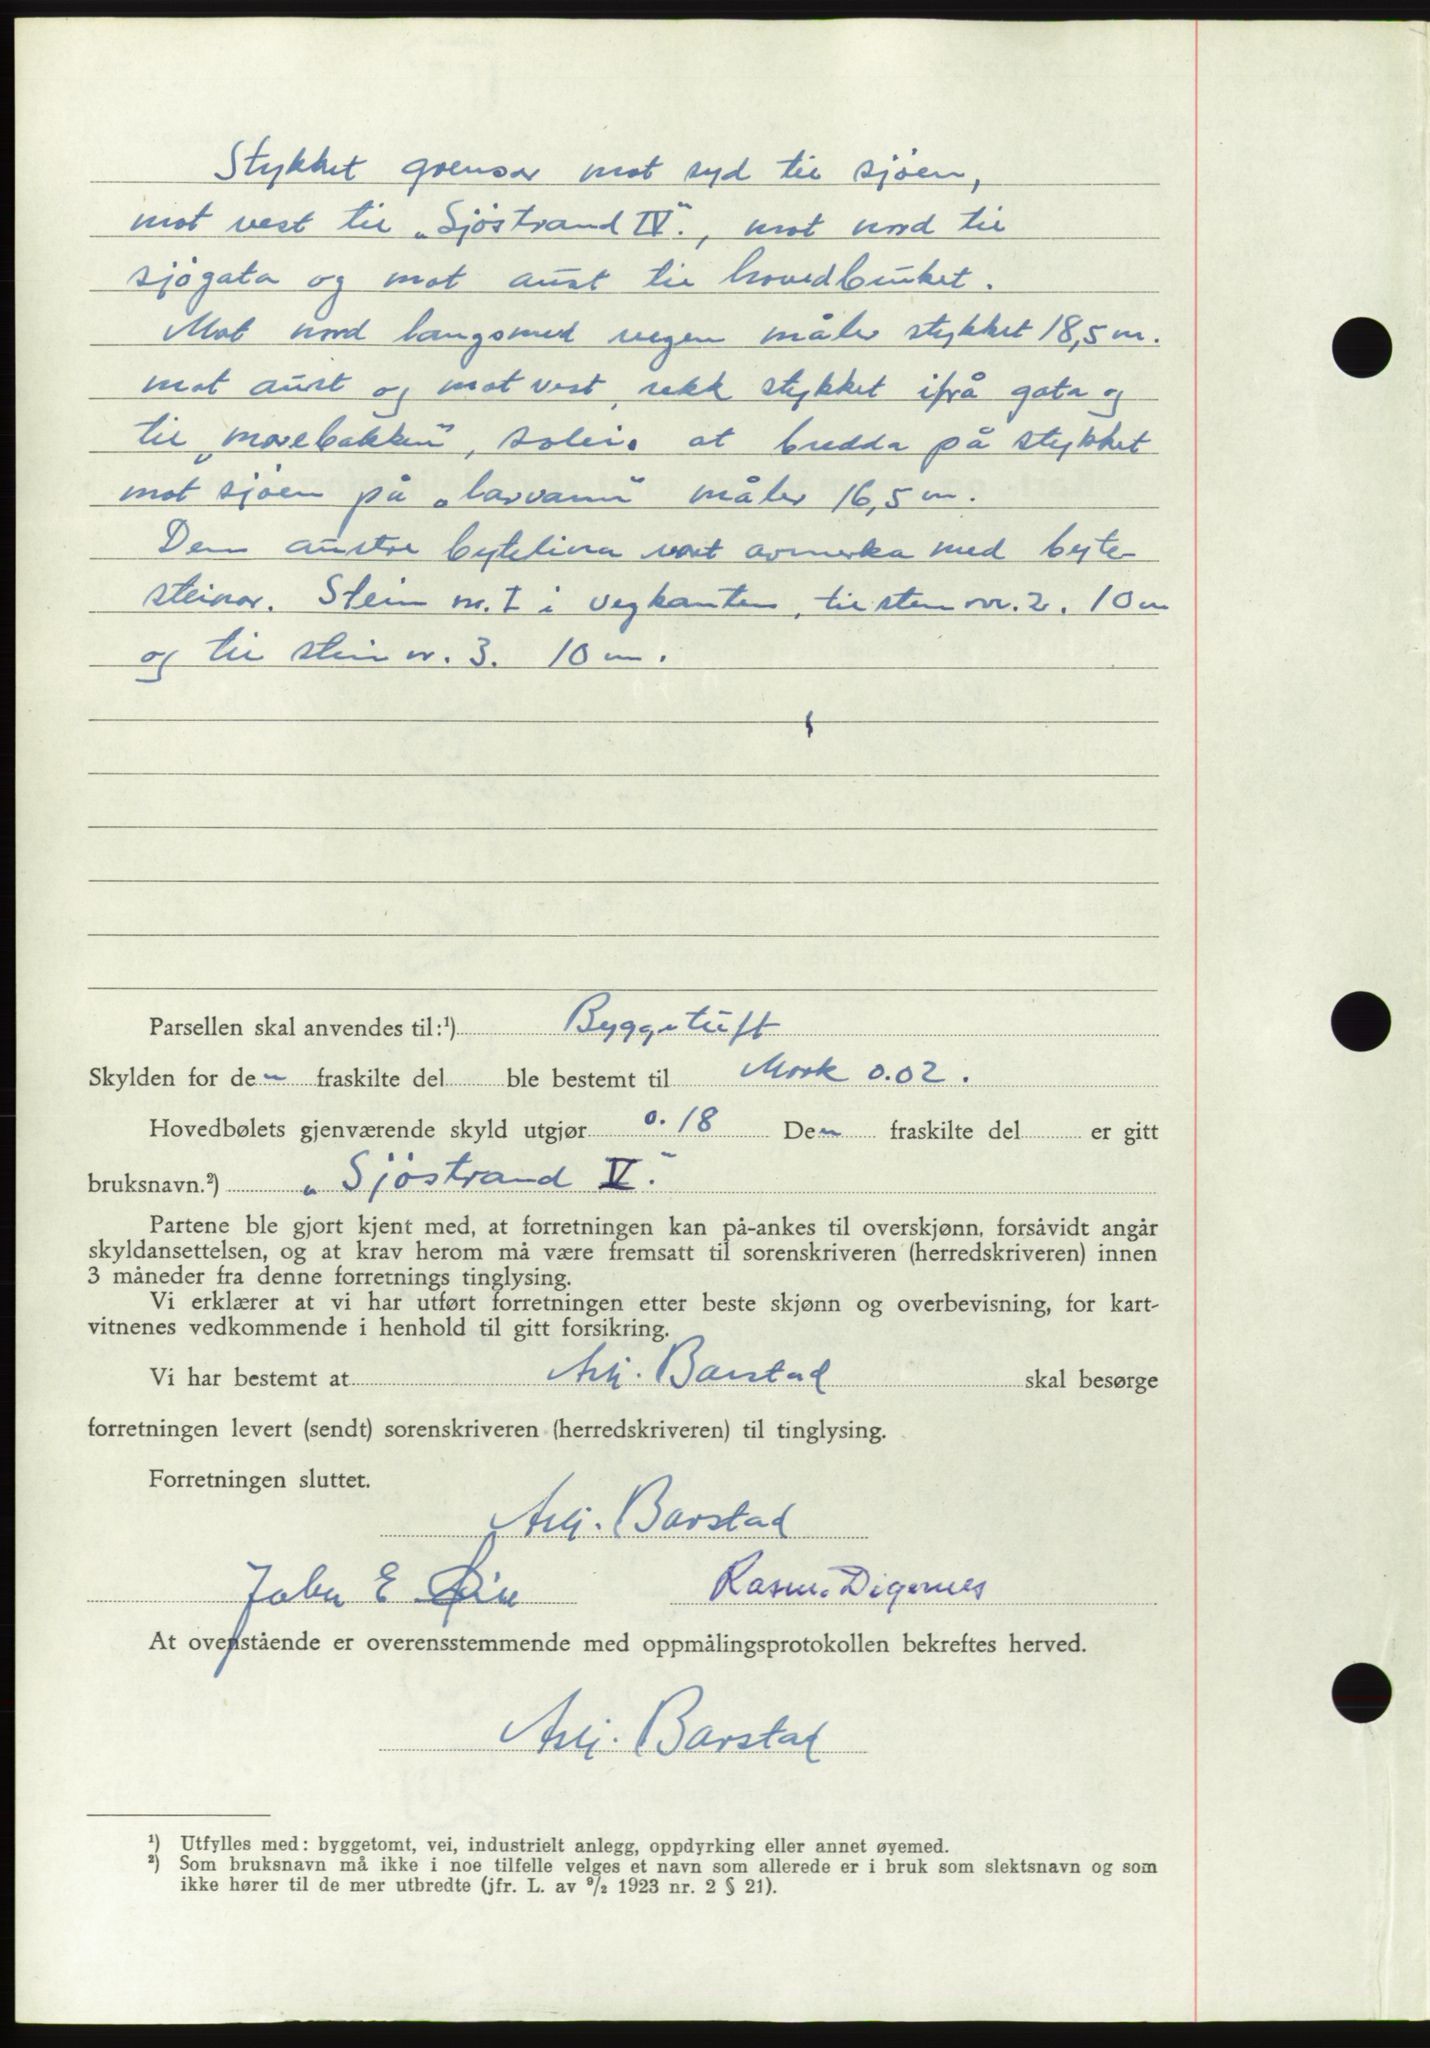 Stykket grensar mot syd til sjøen,
mot vest til „Sjöstrand IV“., mot nord til
sjögata og mot aust til hovedbruket.
Mot nord langsmed vegen måler stykket 18,5 m.
mot aust og mot vest, rekk stykket ifrå gata og
til „marebakken“, soleis at bredda på stykket
mot sjøen på „larvann“ måler 16,5 m.
Den austre bytelina vart avmerka med byte-
steinar. Stein nr. I i vegkanten, til sten nr. 2. 10 m
og til stein nr. 3. 10 m.
Parsellen skal anvendes til:¹) Byggetuft
Skylden for den fraskilte del ble bestemt til Mark 0.02.
Hovedbølets gjenværende skyld utgjør 0.18 Den fraskilte del er gitt
bruksnavn.²) „Sjöstrand V.“
Partene ble gjort kjent med, at forretningen kan på-ankes til overskjønn, forsåvidt angår
skyldansettelsen, og at krav herom må være fremsatt til sorenskriveren (herredskriveren) innen
3 måneder fra denne forretnings tinglysing.
Vi erklærer at vi har utført forretningen etter beste skjønn og overbevisning, for kart-
vitnenes vedkommende i henhold til gitt forsikring.
Vi har bestemt at Asbj. Barstad skal besørge
forretningen levert (sendt) sorenskriveren (herredskriveren) til tinglysing.
Forretningen sluttet.
Asbj. Barstad
E Rasm. Digernes
At ovenstående er overensstemmende med oppmålingsprotokollen bekreftes herved.
Asbj. Barstad
¹) Utfylles med: byggetomt, vei, industrielt anlegg, oppdyrking eller annet øyemed.
²) Som bruksnavn må ikke i noe tilfelle velges et navn som allerede er i bruk som slektsnavn og som
ikke hører til de mer utbredte (jfr. L. av 9/2 1923 nr. 2 § 21).